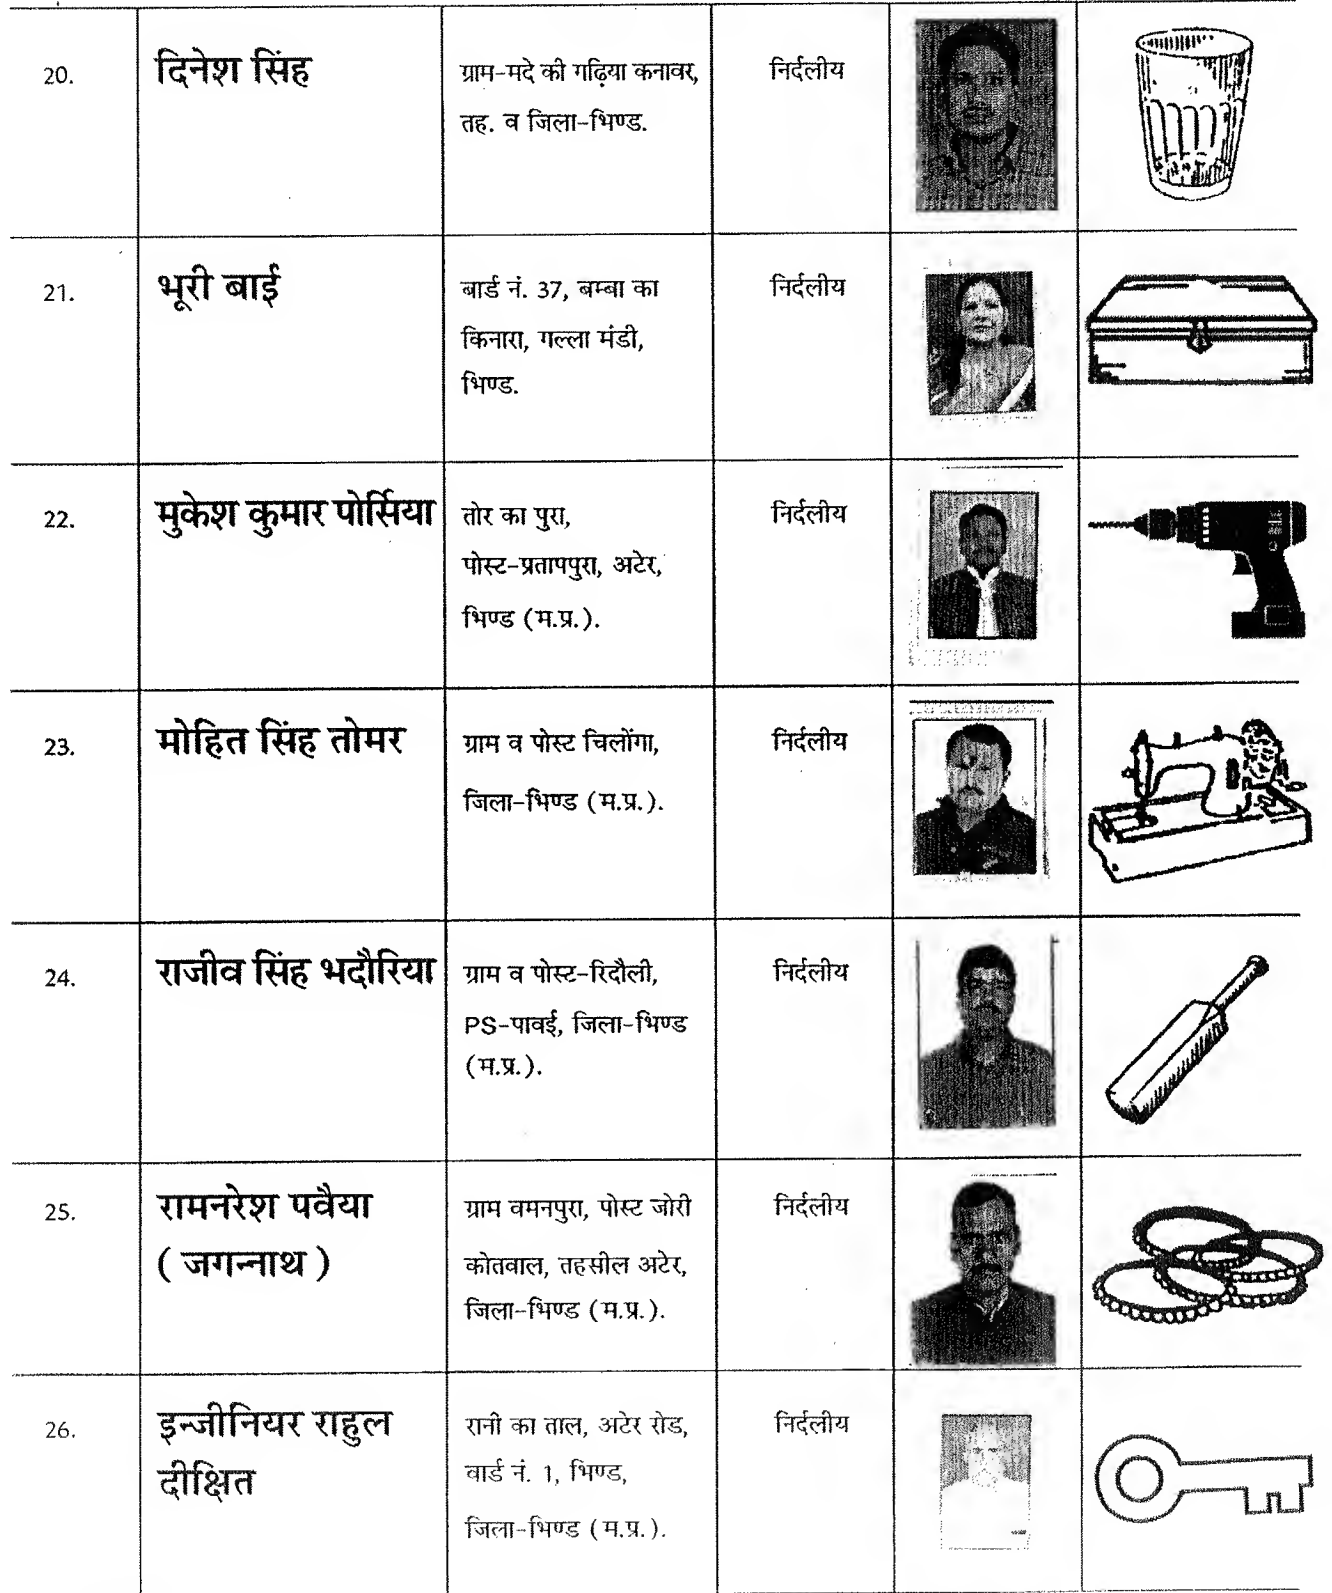 20.
दिनेश सिंह
ग्राम-मदे की गढ़िया कनावर,
तह. व जिला-भिण्ड.
निर्दलीय
21.
भूरी बाई
बार्ड नं. 37, बम्बा का
किनारा, गल्ला मंडी,
भिण्ड.
निर्दलीय
22.
मुकेश कुमार पोर्सिया
तोर का पुरा,
पोस्ट-प्रतापपुरा, अटेर,
भिण्ड (म.प्र.).
निर्दलीय
23.
मोहित सिंह तोमर
ग्राम व पोस्ट चिलोंगा,
जिला-भिण्ड (म.प्र.).
निर्दलीय
24.
राजीव सिंह भदौरिया
ग्राम व पोस्ट-रिदौली,
PS-पावई, जिला-भिण्ड
(म.प्र.).
निर्दलीय
25.
रामनरेश पवैया
( जगन्नाथ )
ग्राम वमनपुरा, पोस्ट जोरी
कोतवाल, तहसील अटेर,
जिला-भिण्ड (म.प्र.).
निर्दलीय
26.
इन्जीनियर राहुल
दीक्षित
रानी का ताल, अटेर रोड,
वार्ड नं. 1, भिण्ड,
जिला-भिण्ड (म.प्र.).
निर्दलीय